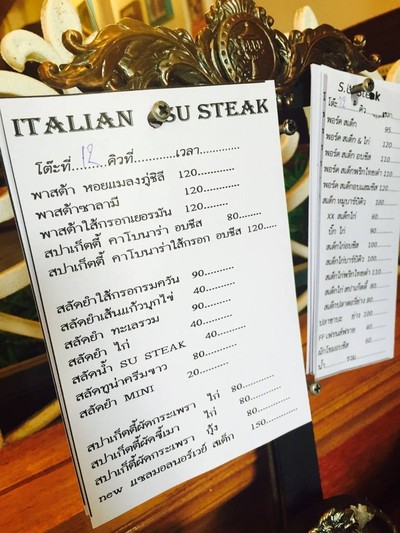 ITALIAN SU STEAK
โต๊ะที่ 12 คิวที่............เวลา............
พาสต้า หอยแมลงภู่ชิลี 120..........
พาสต้าซาลามี 120..........
พาสต้าไส้กรอกเยอรมัน 120..........
สปาเก็ตตี้ คาโบนาร่า อบชีส 80..........
สปาเก็ตตี้ คาโบนาร่าไส้กรอก อบชีส 120.....
สลัดยำไส้กรอกรมควัน 90..........
สลัดยำเส้นแก้วบุกไข่ 40..........
สลัดยำ ทะเลรวม 90..........
สลัดยำ ไก่ 40..........
สลัดน้ำ SU STEAK 40..........
สลัดทูน่าครีมซาว 80..........
สลัดยำ MINI 20..........
สปาเก็ตตี้ผัดกระเพรา ไก่ 80..........
สปาเก็ตตี้ผัดขี้เมา ไก่ 80..........
สปาเก็ตตี้ผัดกระเพรา กุ้ง 80..........
new แซลมอลนอร์เวย์ สเต็ก 150..........
S.U Steak
โต๊ะ 12 คิว
พอร์ค สเต็ก 95
พอร์ค สเต็ก & ไก่
พอร์ค สเต็ก อบชีส 110
พอร์ค สเต็กพริกไทยดำ 110
สเต็ก หมูบาร์บีคิว 100
XX สเต็กไก่ 60
บิ๊ก ไก่ 90
สเต็กไก่อบชีส 100
สเต็กไก่บาร์บีคิว 100
สเต็กไก่พริกไทยดำ 110
สเต็กไก่ สปาเก็ตตี้ 80
ปลาซาบะ ย่าง 100
FF เฟรนช์ฟราย 40
ผักโขมอบชีส 60
น้ำ รวม